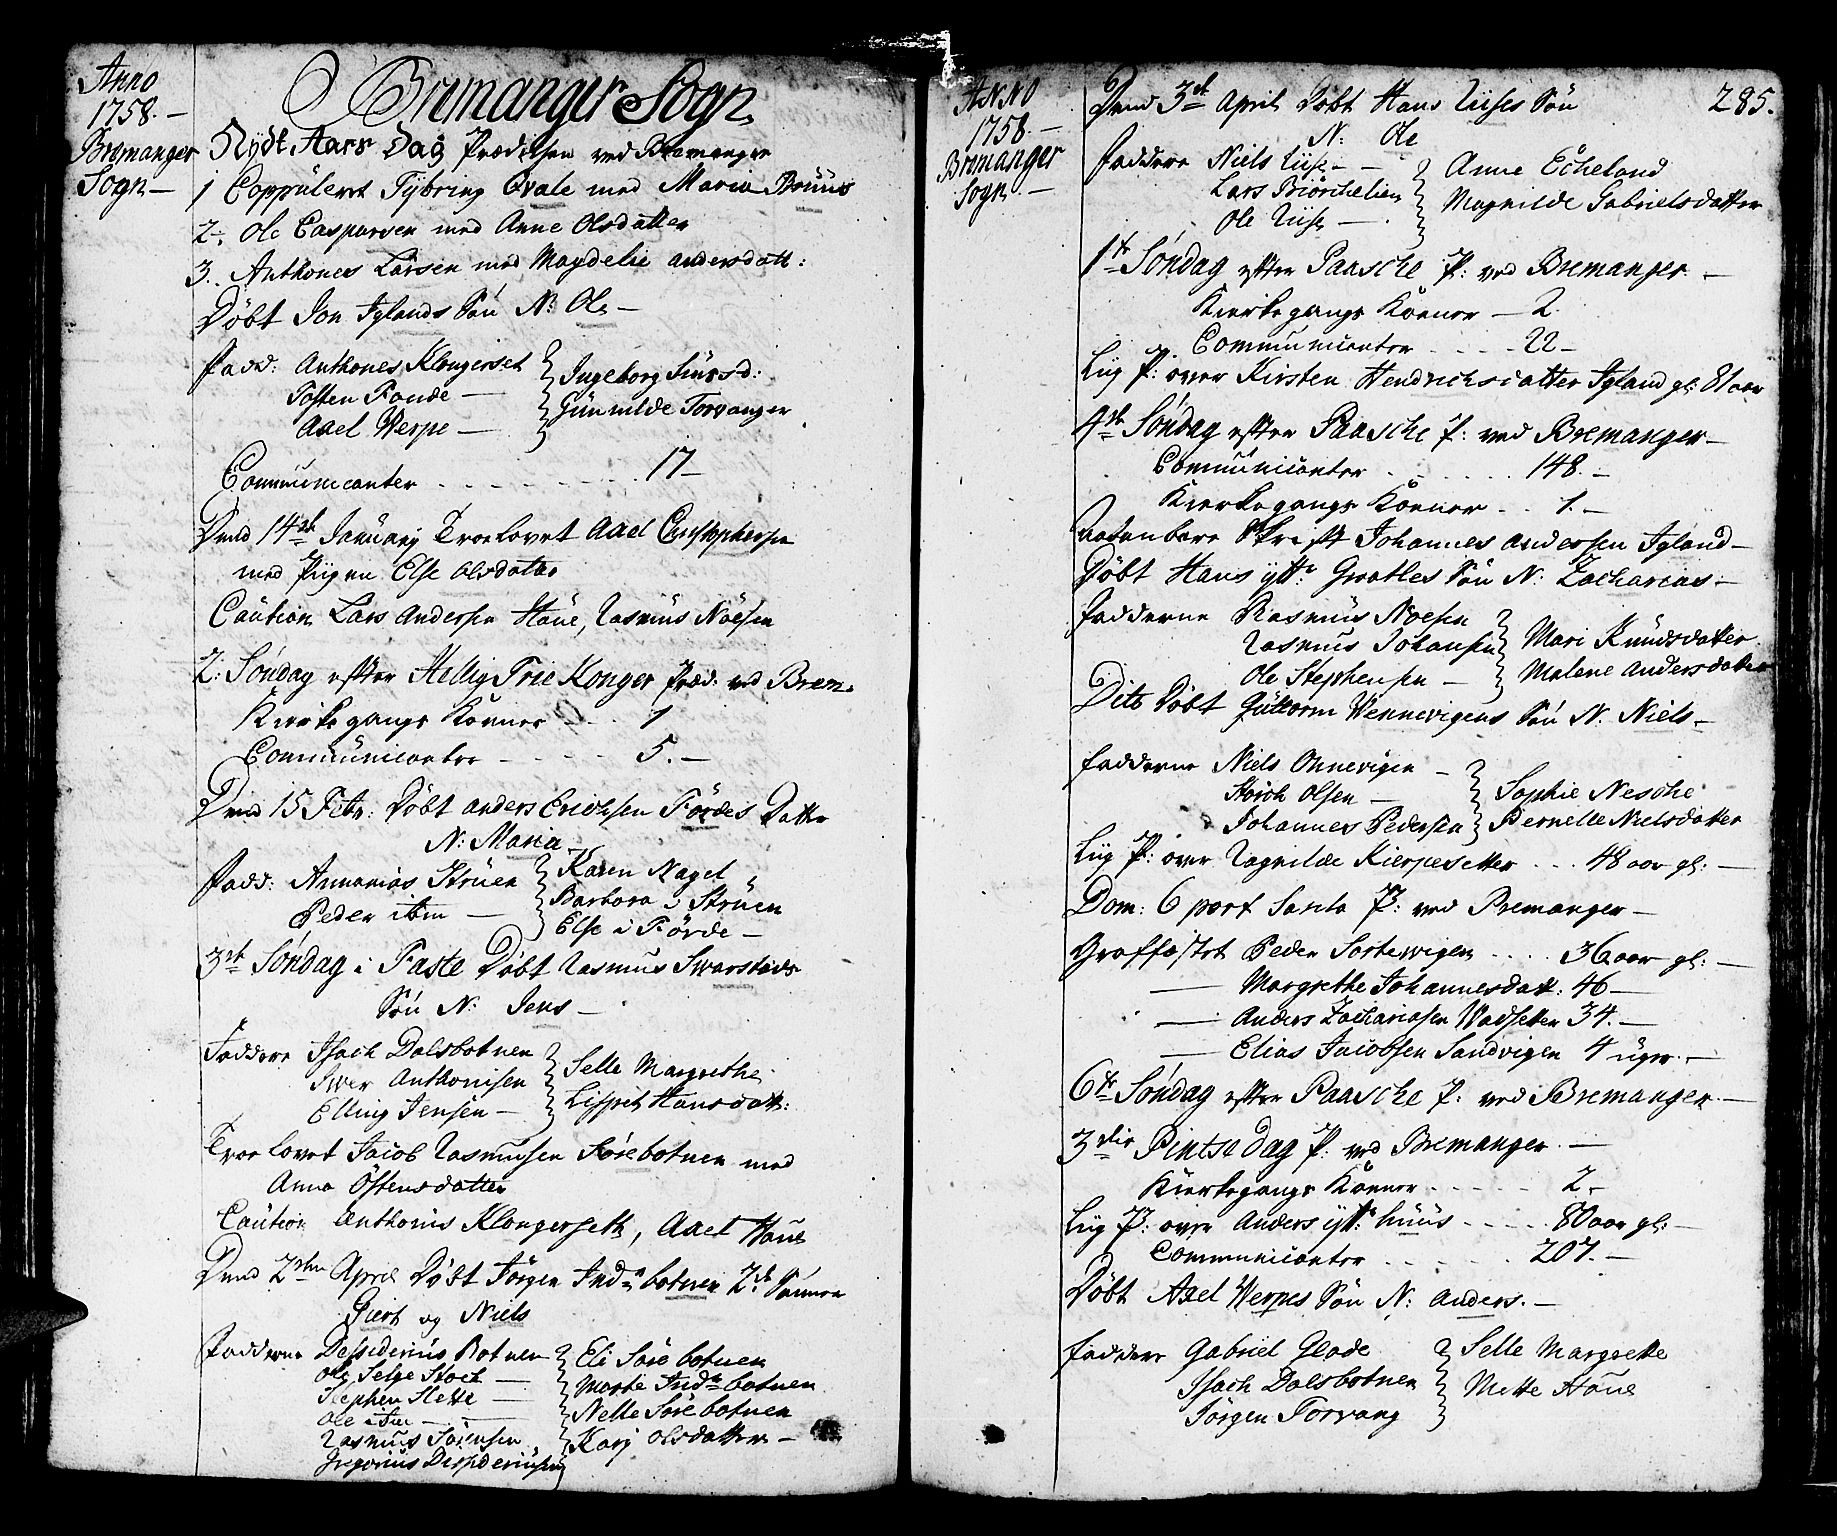 Anno
1758.-
Bremanger
Sogn-
Bremanger Sogn
Nÿdt Aars Dag Prædiken ved Bremanger
1 Coppuleret Tÿbring Qvale med Maria Bruus
2. Ole Caspersen med Anne Olsdatter
3. Anthones Larsen med Magdeli andersdatt:
Døbt Jon Iglands Søn N: Ole-
Fadd: Anthones Klongerset
Tosten Fonde-
Axel Verpe-
Ingeborg Siursd:
Gunnilde Torvanger
Communicanter - - - 17-
Dend 14de Januarÿ Troelovet Axel Christophersen
med Piigen Else Olsdatter
Caution Lars Andersen Houe, Rasmus Nøesen
2: Søndag efter Hellig Trie Konger Præd: ved Brem.
Kierkegangs Koener - - 1
Communicanter - - - 5.-
Dend 15 Febr: Døbt anders Erichsen Førdes Datter
N: Maria
Fadd: Annanias Struen
Peder ibm-
Karen Nagel
Barbora i Struen
Else i Førde-
3de Søndag i Faste Døbt Rasmus Svarstads
Søn N: Jens-
Faddere Isach Dalsbotnen
Iver Anthonisen
Elling Jensen-
Selle Margrethe
Lisspit Hansdatt:
Troelovet Jacob Rasmusen Sørebotnen med
Anna Østensdatter
Caution Anthonis Klongersett, Axel Houe
Dend 2den April Døbt Jørgen Indrebotnen 2de Sønner
Giert og Niels
Fadderne Dessiderius Botnen
Ole Selge Stoet-
Stephen Slette-
Ole ibm-
Rasmus Sørensen
Gregorius Dessideriusen
Eli Sørebotnen
Marte Indrebotnen
Nelle Sørebotnen
Kari Olsdatter-
ANNO
1758.-
Bremanger
Sogn.-
285.
Dend 3de April Døbt Hans Riises Søn
N: Ole
Faddere Niels Riise- -
Lars Biørchelien
Ole Riise-
Anne Echeland
Magnilde Gabrielsdatter
1te Søndag efter Paasche P: ved Bremanger-
Kierkegangs Koener-2.
Communicanter - - - 22-
Liig P: over Kirsten Hendrichsdatter Igland gl: 81 aar
4de Søndag efter Paasche P: ved Bremanger-
Communicanter - - - 148.-
Kierkegangs Koener - - 1.-
Aabenbare Skrift Johannes Andersen Igland-
Døbt Hans ytt: Grotles Søn N: Zacharias-
Fadderne Rasmus Noesen
Rasmus Johansen
Ole Stephensen-
Mari Knudsdatter
Malene Andersdatter
Dito Døbt Guttorm Vennevigens Søn N: Niels-
Fadderne Niels Onnevigen-
Olsen-
Johannes Pedersen
Sophie Nesche
Pernelle Nielsdatter
Liig P: over Ragnilde Kierpesetter - - 48 aar gl:-
Dom: 6 post P: ved Bremanger-
Graffæstet Peder Sortevigen - - - 36 aar gl:-
- Margrethe Johannesdatt: 46-
- Anders Zachariasen Vadsetter 34.-
- Elias Jacobsen Sandvigen 4 uger.-
6te Søndag efter Paasche P: ved Bremanger-
3die Pintse Dag P: ved Bremanger-
Kierkegangs Koener - - - 2-
Liig P: over Anders ytt: huus - - - 80 aar gl:-
Communicanter - - - 207.-
Døbt Axel Verpes Søn N: Anders.-
Faddere Gabriel Glade
Isach Dalsbotnen
Jørgen Torvang
Selle Margrette
Mette Houe